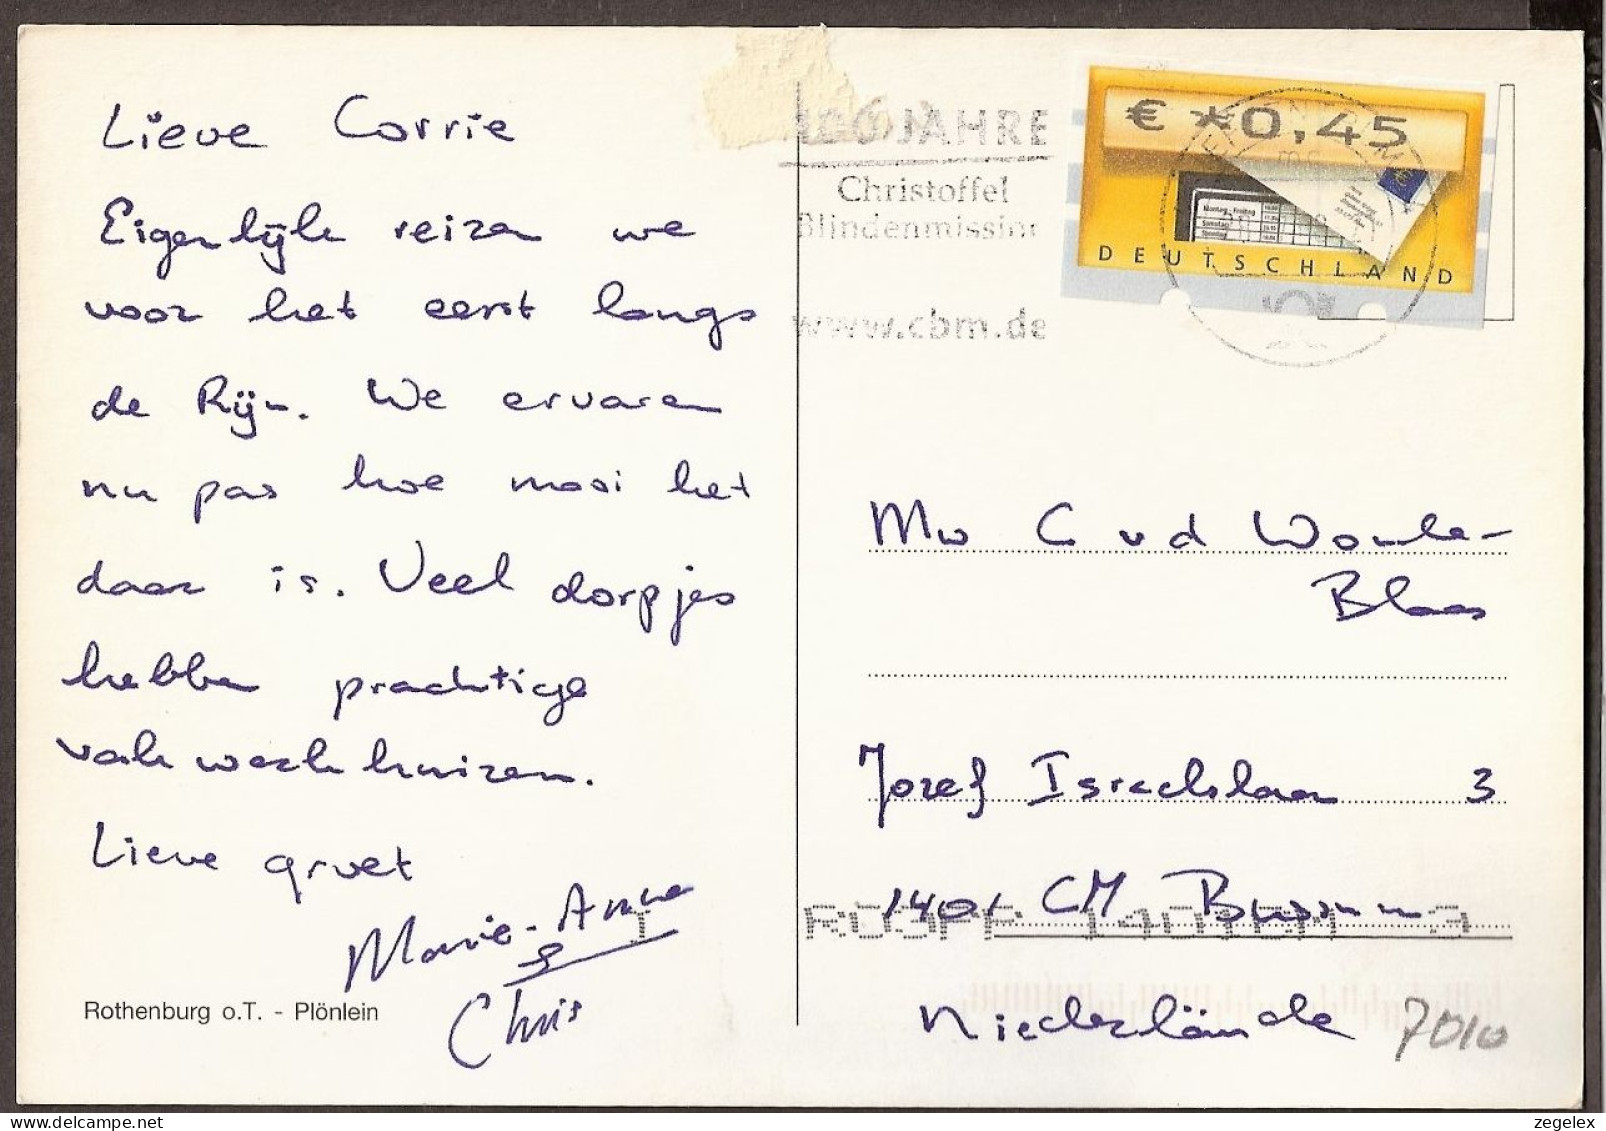 Lieve Corrie
Eigenlijk reizen we
voor het eerst langs
de Rijn. We ervaren
nu pas hoe mooi het
daar is. Veel dorpjes
hebben prachtige
vakwerkhuizen.
Lieve groet
Marie-Anne
&
Chris
Rothenburg o.T. - Plönlein
100 JAHRE
Christoffel
Blindenmission
www.cbm.de
€ *0,45
DEUTSCHLAND
Mw C vd Woude-
Blaas
Jozef Israelslaan 3
1401 CM Bussum
Niederlände
7010
zegelex